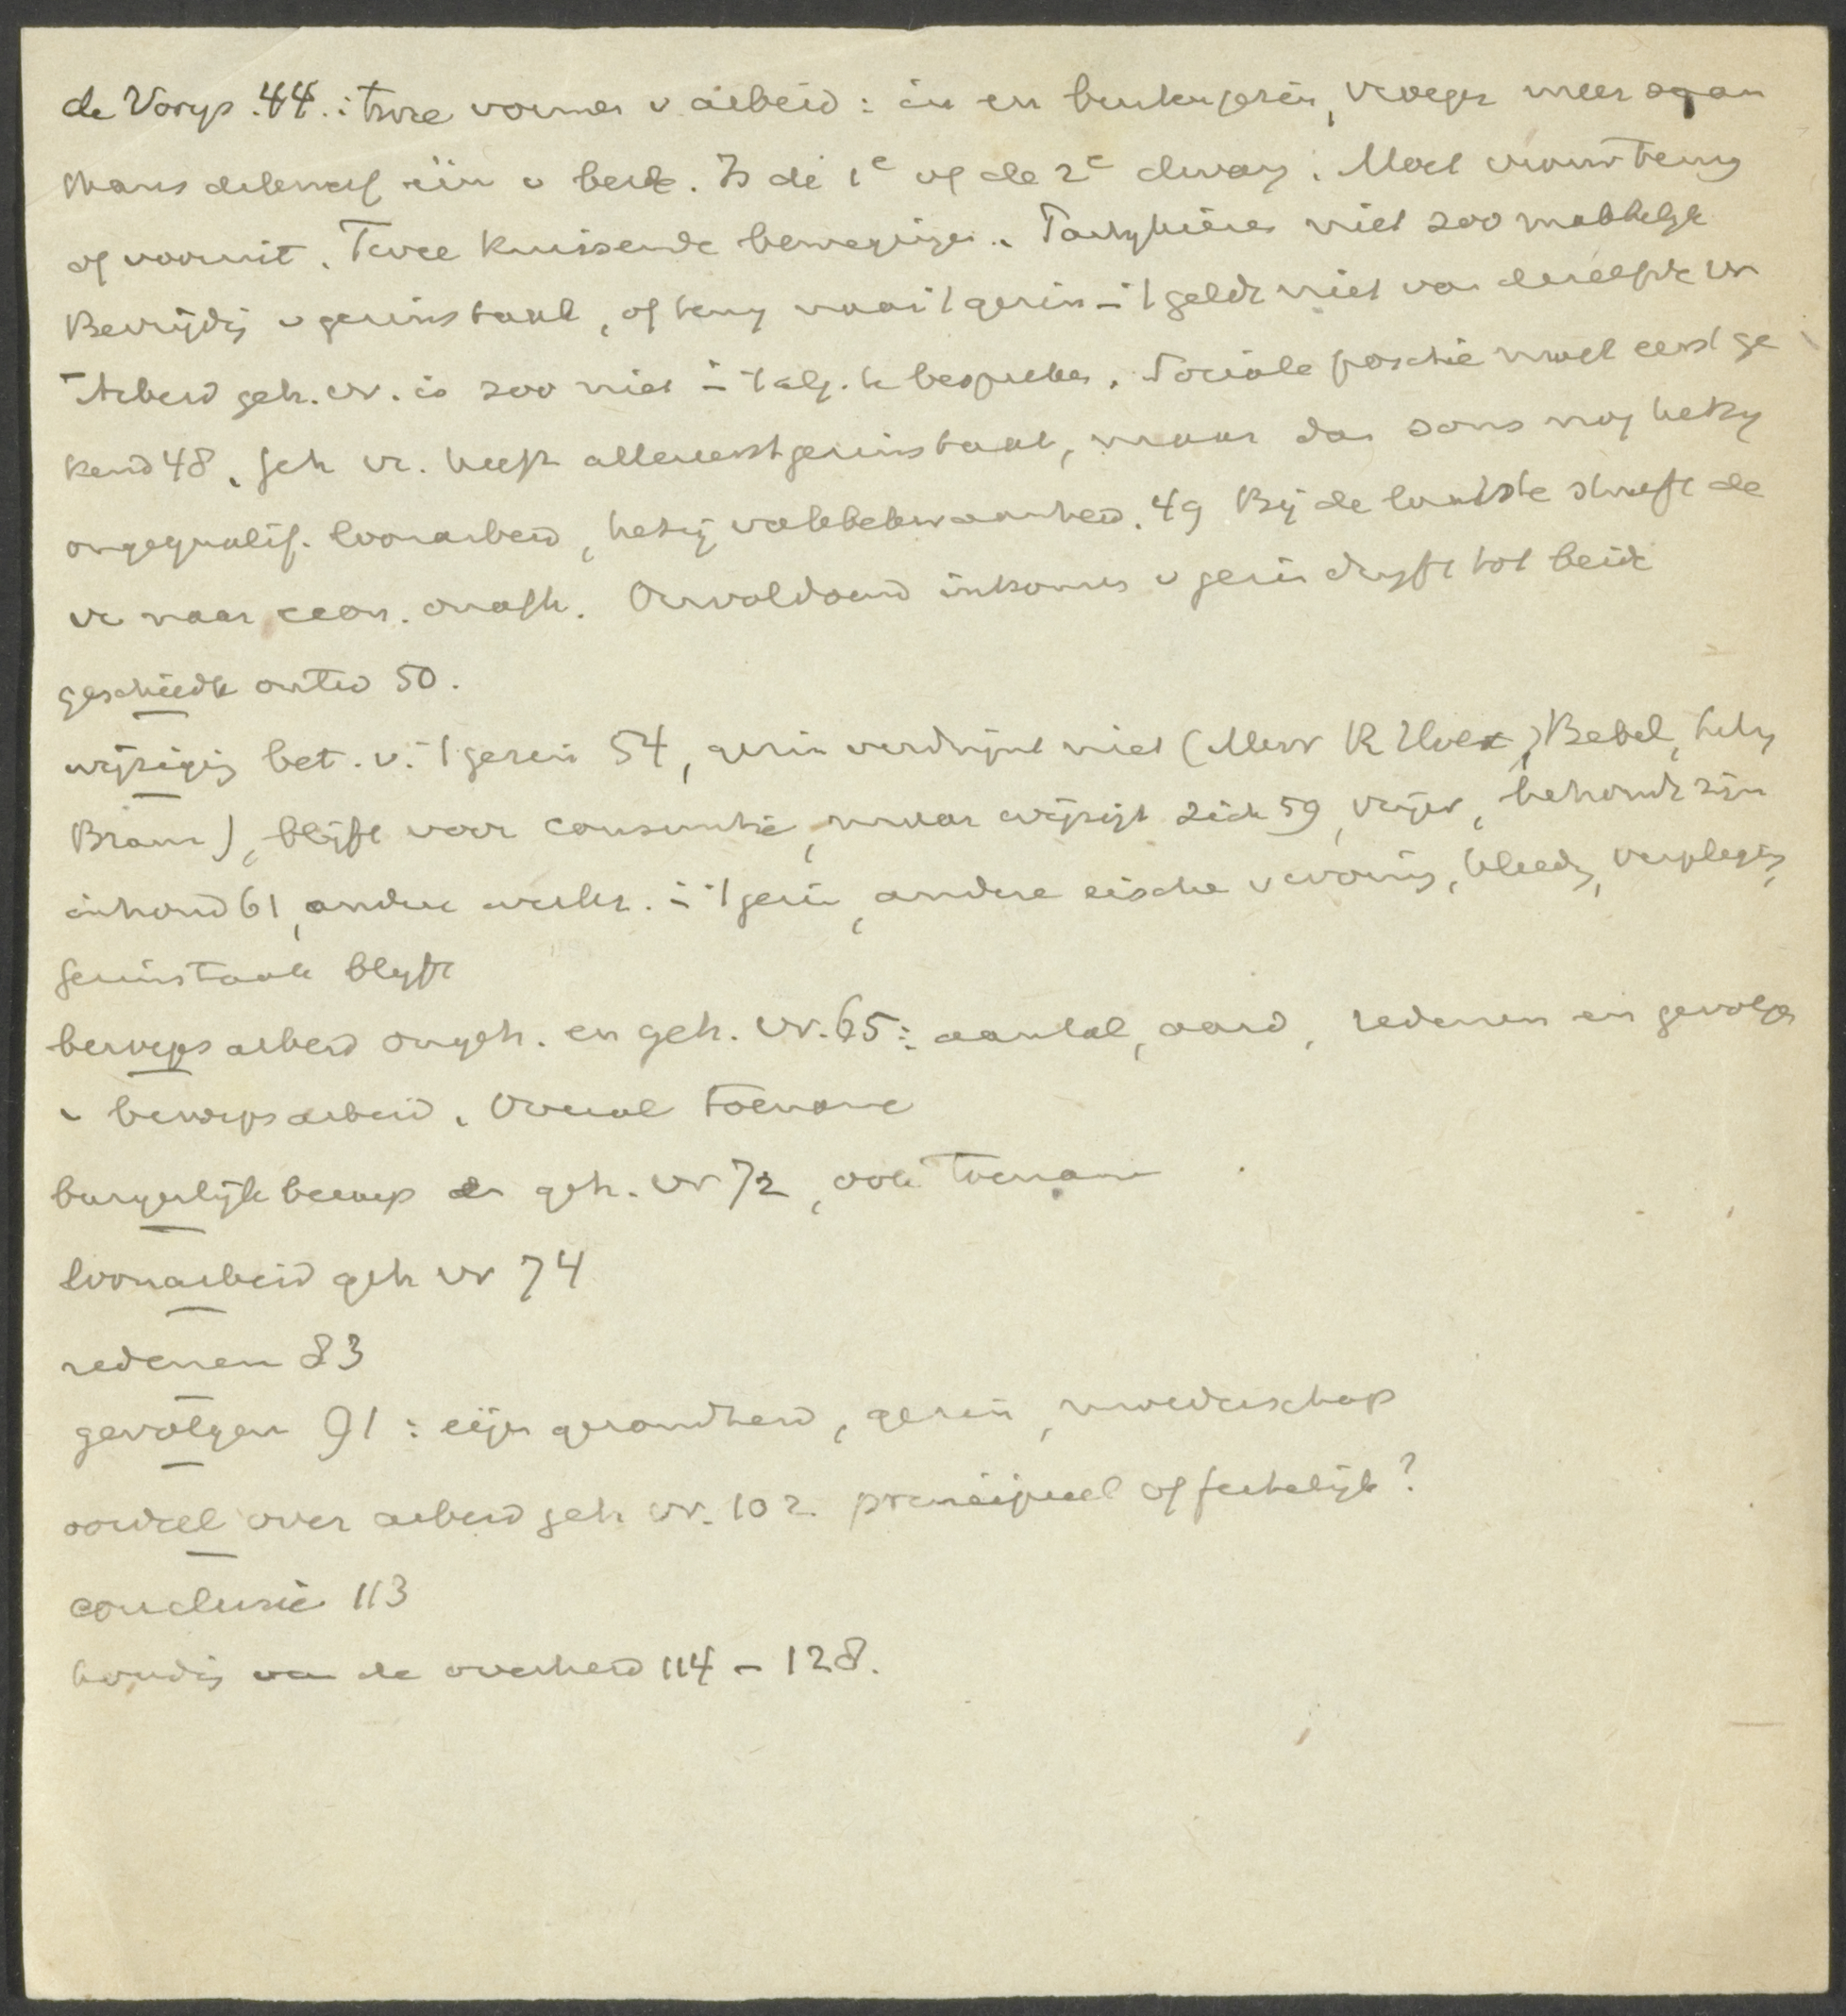 de Vooys. 44. : twee vormen v. arbeid : in en buiten gezin, vroeger meer
thans dikwerf één v beide. Is de 1e of de 2e dwang. Moet vrouw terug
of vooruit. Twee kruisende bewegingen. Partijkiezen niet zoo makkelijk
Bevrijdg v gezinstaak, of terug naar 't gezin - 't geldt niet van dezelfde vr
Arbeid geh. vr. is zoo niet i 't alg. te bespreken. Sociale positie moet eerst ge
kend 48. Geh vr. heeft allereerst gezinstaak, maar dan soms nog hetzij
ongequalif. loonarbeid, hetzij vakbekwaamheid. 49 Bij de laatste streeft de
vr naar econ. onafh. Onvoldoend inkomen v gezin dryft tot beide
geschiedk ontw 50.
wijziging bet. v. 't gezin 54, gezin verdwijnt niet (Mevr R Holst, Bebel, Lily
Braun), blijft voor consumtie, maar wijzigt zich 59, vrijer, behoudt zijn
inhoud 61, andere werkz. i 't gezin, andere eischen v woning, kleedg, verpleging,
gezinstaak blyft
beroepsarbeid ongeh. en geh. vr. 65 : aantal, aard, redenen en gevolgen
v beroepsarbeid. Overal toename
burgerlijk beroep der geh. vr 72, ook toename
loonarbeid geh vr 74
redenen 83
gevolgen 91 : eigen gezondheid, gezin, moederschap
oordeel over arbeid geh vr. 102 principieel of feitelijk?
conclusie 113
houdg van de overheid 114 - 128.